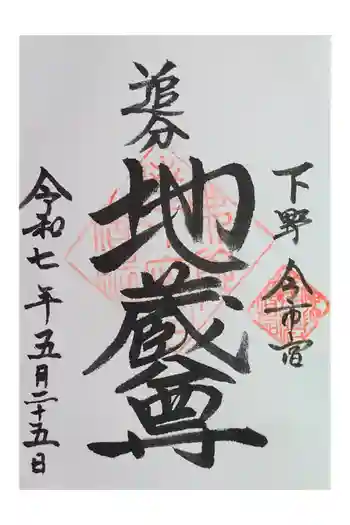 下野
今市宿
追分
地蔵尊
令和七年五月二十五日